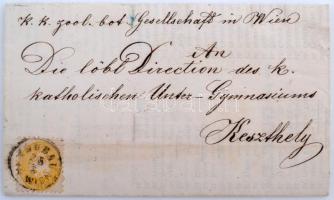 k. k. zool. bot. Gesellschaft in Wien
An
Die löbl Direction des k.
katholischen Unter-Gymnasiums
Keszthely
WIEN